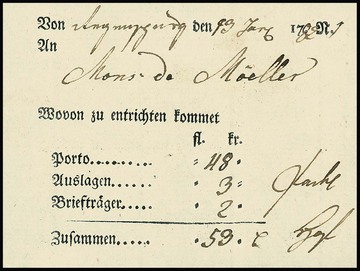 Von Regenspurg den 23 Jan 17 N. 1
An
Mons. de Möeller
Wovon zu entrichten kommet
fl. kr.
Porto......... " 48 "
Auslagen........ " 3 "
Briefträger...... " 2 "
Zusammen....... " 53 "